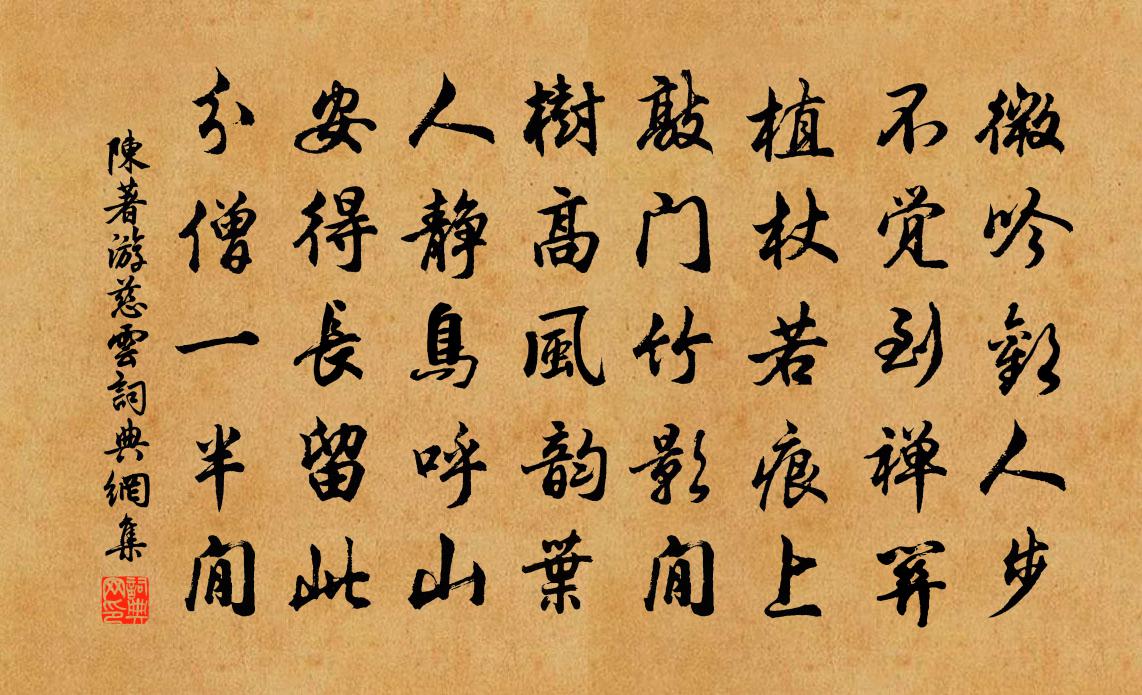 微吟勸人步
不觉到禅関
植杖若痕上
敲门竹影间
樹高風韵葉
人静鳥呼山
安得長留此
分僧一半间
陳著游慈雲詞典網集
詞典网印